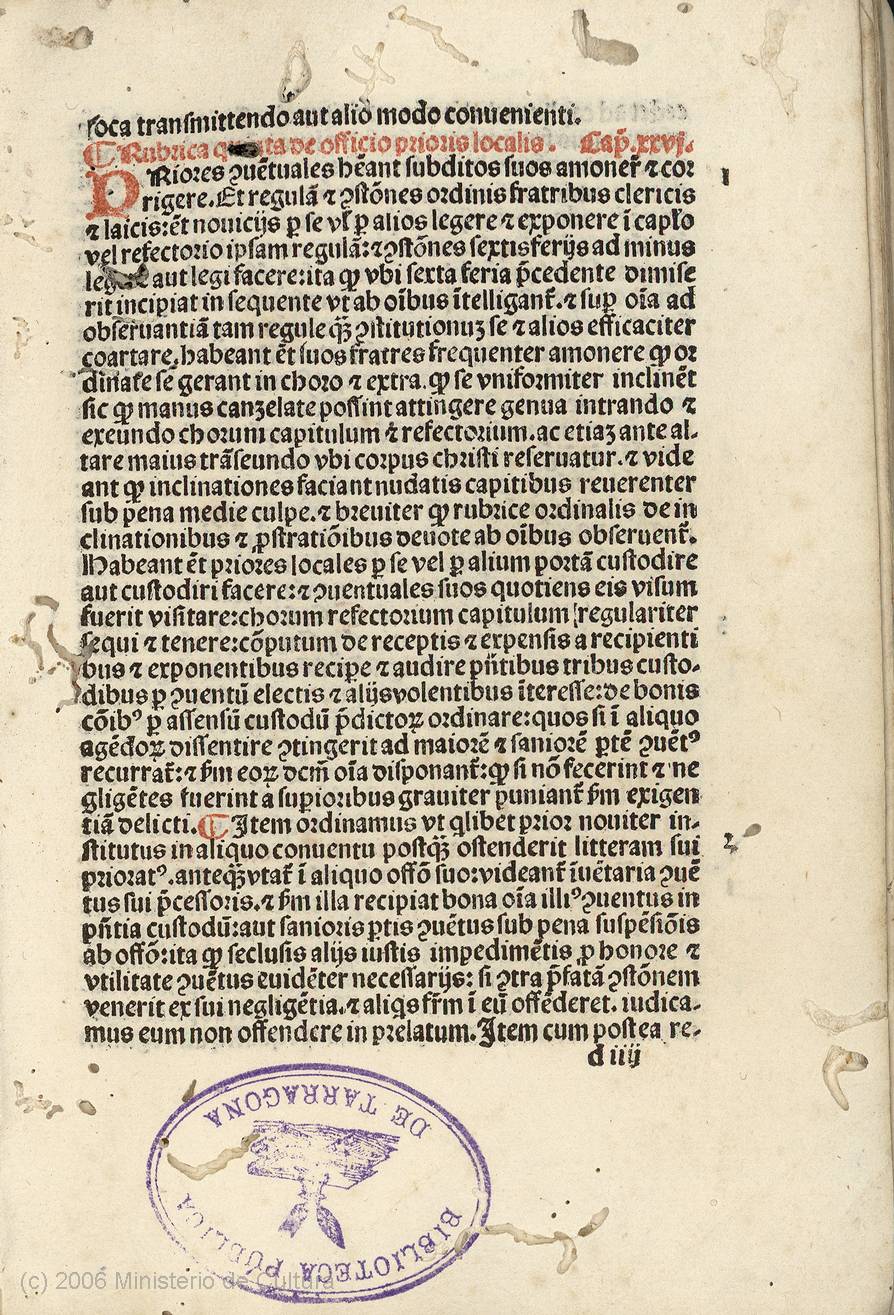 ſoca tranſmittendo aut alio modo conuenienti.
¶ Rubrica de officio prioris localis. Cap̃. xxvj.
PRiores ꝯuẽtuales hẽant ſubditos ſuos amoner̃ ⁊ cor
rigere. Et regulã ⁊ ꝯſtões ordinis fratribus clericis
⁊ laicis: ẽt nouicijs ꝑ ſe vł ꝑ alios legere ⁊ exponere ĩ capło
vel refectorio ipſam regulã: ⁊ ꝯſtões ſextis ferijs ad minus
aut legi facere: ita ꝙ vbi ſexta feria p̃cedente dimiſe
rit incipiat in ſequente vt ab oĩbus ĩtelligant̃. ⁊ ſuꝑ oĩa ad
obſeruantiã tam regule q̃ꝫ ꝯſtitutionuꝫ ſe ⁊ alios efficaciter
coartare. habeant ẽt ſuos fratres frequenter amonere ꝙ or
dinate ſe gerant in choro ⁊ extra. ꝙ ſe vniformiter inclinẽt
ſic ꝙ manus canzelate poſſint attingere genua intrando ⁊
exeundo chorum capitulum ⁊ refectorium. ac etiaꝫ ante al-
tare maius trãſeundo vbi corpus chriſti reſeruatur. ⁊ vide
ant ꝙ inclinationes faciant nudatis capitibus reuerenter
ſub pena medie culpe. ⁊ breuiter ꝙ rubrice ordinalis de in
clinationibus ⁊ ꝓſtratiõibus deuote ab oĩbus obſeruent̃.
Habeant ẽt priores locales ꝑ ſe vel ꝑ alium portã cuſtodire
aut cuſtodiri facere: ⁊ ꝯuentuales ſuos quotiens eis viſum
fuerit viſitare: chorum refectorium capitulum regulariter
ſequi ⁊ tenere: cõputum de receptis ⁊ expenſis a recipienti
bus ⁊ exponentibus recipe ⁊ audire pñtibus tribus cuſto-
dibus ꝑ ꝯuentũ electis ⁊ alijs volentibus ĩtereſſe: de bonis
cõibꝰ ꝑ aſſenſũ cuſtodũ p̃dictoꝝ ordinare: quos ſi ĩ aliquo
agẽdoꝝ diſſentire ꝯtingerit ad maiorẽ ⁊ ſaniorẽ ꝑtẽ ꝯuẽtꝰ
recurrat̃: ⁊ ẜm eoꝝ dcm̃ oĩa diſponant̃: ꝙ ſi nõ fecerint ⁊ ne
gligẽtes fuerint a ſupioribus grauiter puniant̃ ẜm exigen
tiã delicti. ¶ Item ordinamus vt qlibet prior nouiter in-
ſtitutus in aliquo conuentu poſtq̃ꝫ oſtenderit litteram ſui
prioratꝰ. anteq̃ꝫ vtat̃ ĩ aliquo offõ ſuo: videant̃ ĩuẽtaria ꝯuẽ
tus ſui p̃ceſſoris. ⁊ ẜm illa recipiat bona oĩa illiꝰ ꝯuentus in
pñtia cuſtodũ: aut ſanioris ꝑtis ꝯuẽtus ſub pena ſuſpẽſiõis
ab offõ: ita ꝙ ſecluſis alijs iuſtis impedimẽtis ꝓ honore ⁊
vtilitate ꝯuẽtus euidẽter neceſſarijs: ſi ꝯtra p̃fatã ꝯſtõnem
venerit ex ſui negligẽtia. ⁊ aliqs fr̃m ĩ eũ offẽderet. iudica-
mus eum non offendere in prelatum. Item cum poſtea re-
d iiij
BIBLIOTECA PÚBLICA
DE TARRAGONA
(c) 2006 Ministerio de Cultura